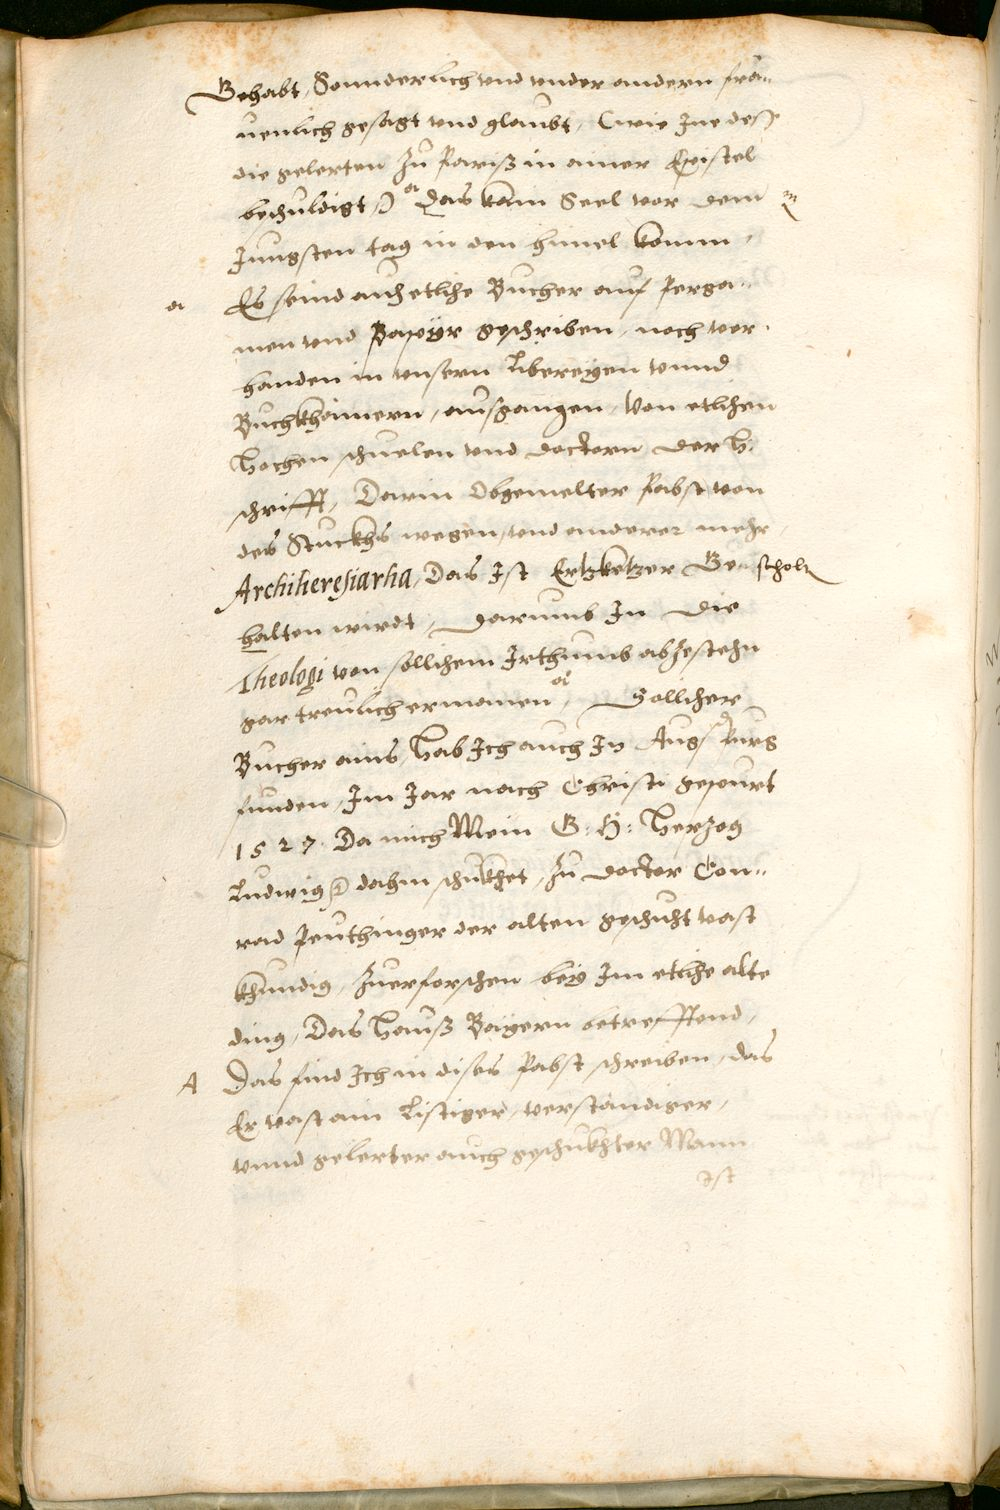 Gehabt, Sonnderlich vnd vnder andern frä¬
uenlich gesagt vnd glaubt, (wie Ine dess
die gelerten zu Pariß in ainer Epistel
beschuldigt) Das kain Seel vor dem
Jungsten tag in den himel komm,
a Es seind auch etliche Bucher auf Perga¬
men vnd Papÿr geschriben, noch vor¬
handen in vnsern Libereyen vnnd
Buchkhamern, ausgangen, Von etlichen
Hochen schuelen vnd doctorn der H.
schrifft, Darin Obgemelter Pabst von
des Stuckhs wegen, vnd anderer mehr,
Archiheresiarha, Das Ist Ertzketzer Ge¬scholt
halten wirdt, Darumb In Die
Theologi von sollichem Irthumb abzestehn
gar treulich ermanen, Sollicher
Bucher ains, Hab Ich auch In Augspurg
funden, Im Jar nach Christi gepurt
1527. Da mich Mein G: H: Herzog
Ludwig dahin schickhet, zu doctor Con¬
rad Peuthinger der alten geschicht vast
khundig, zuerforschen bey Im etliche alte
ding, Das Hauß Bayern betreffend,
A Das find Ich in dises Pabst schreiben, das
Er vast ain Listiger, verstandiger,
vnnd gelerter auch geschickhter Mann
Ist